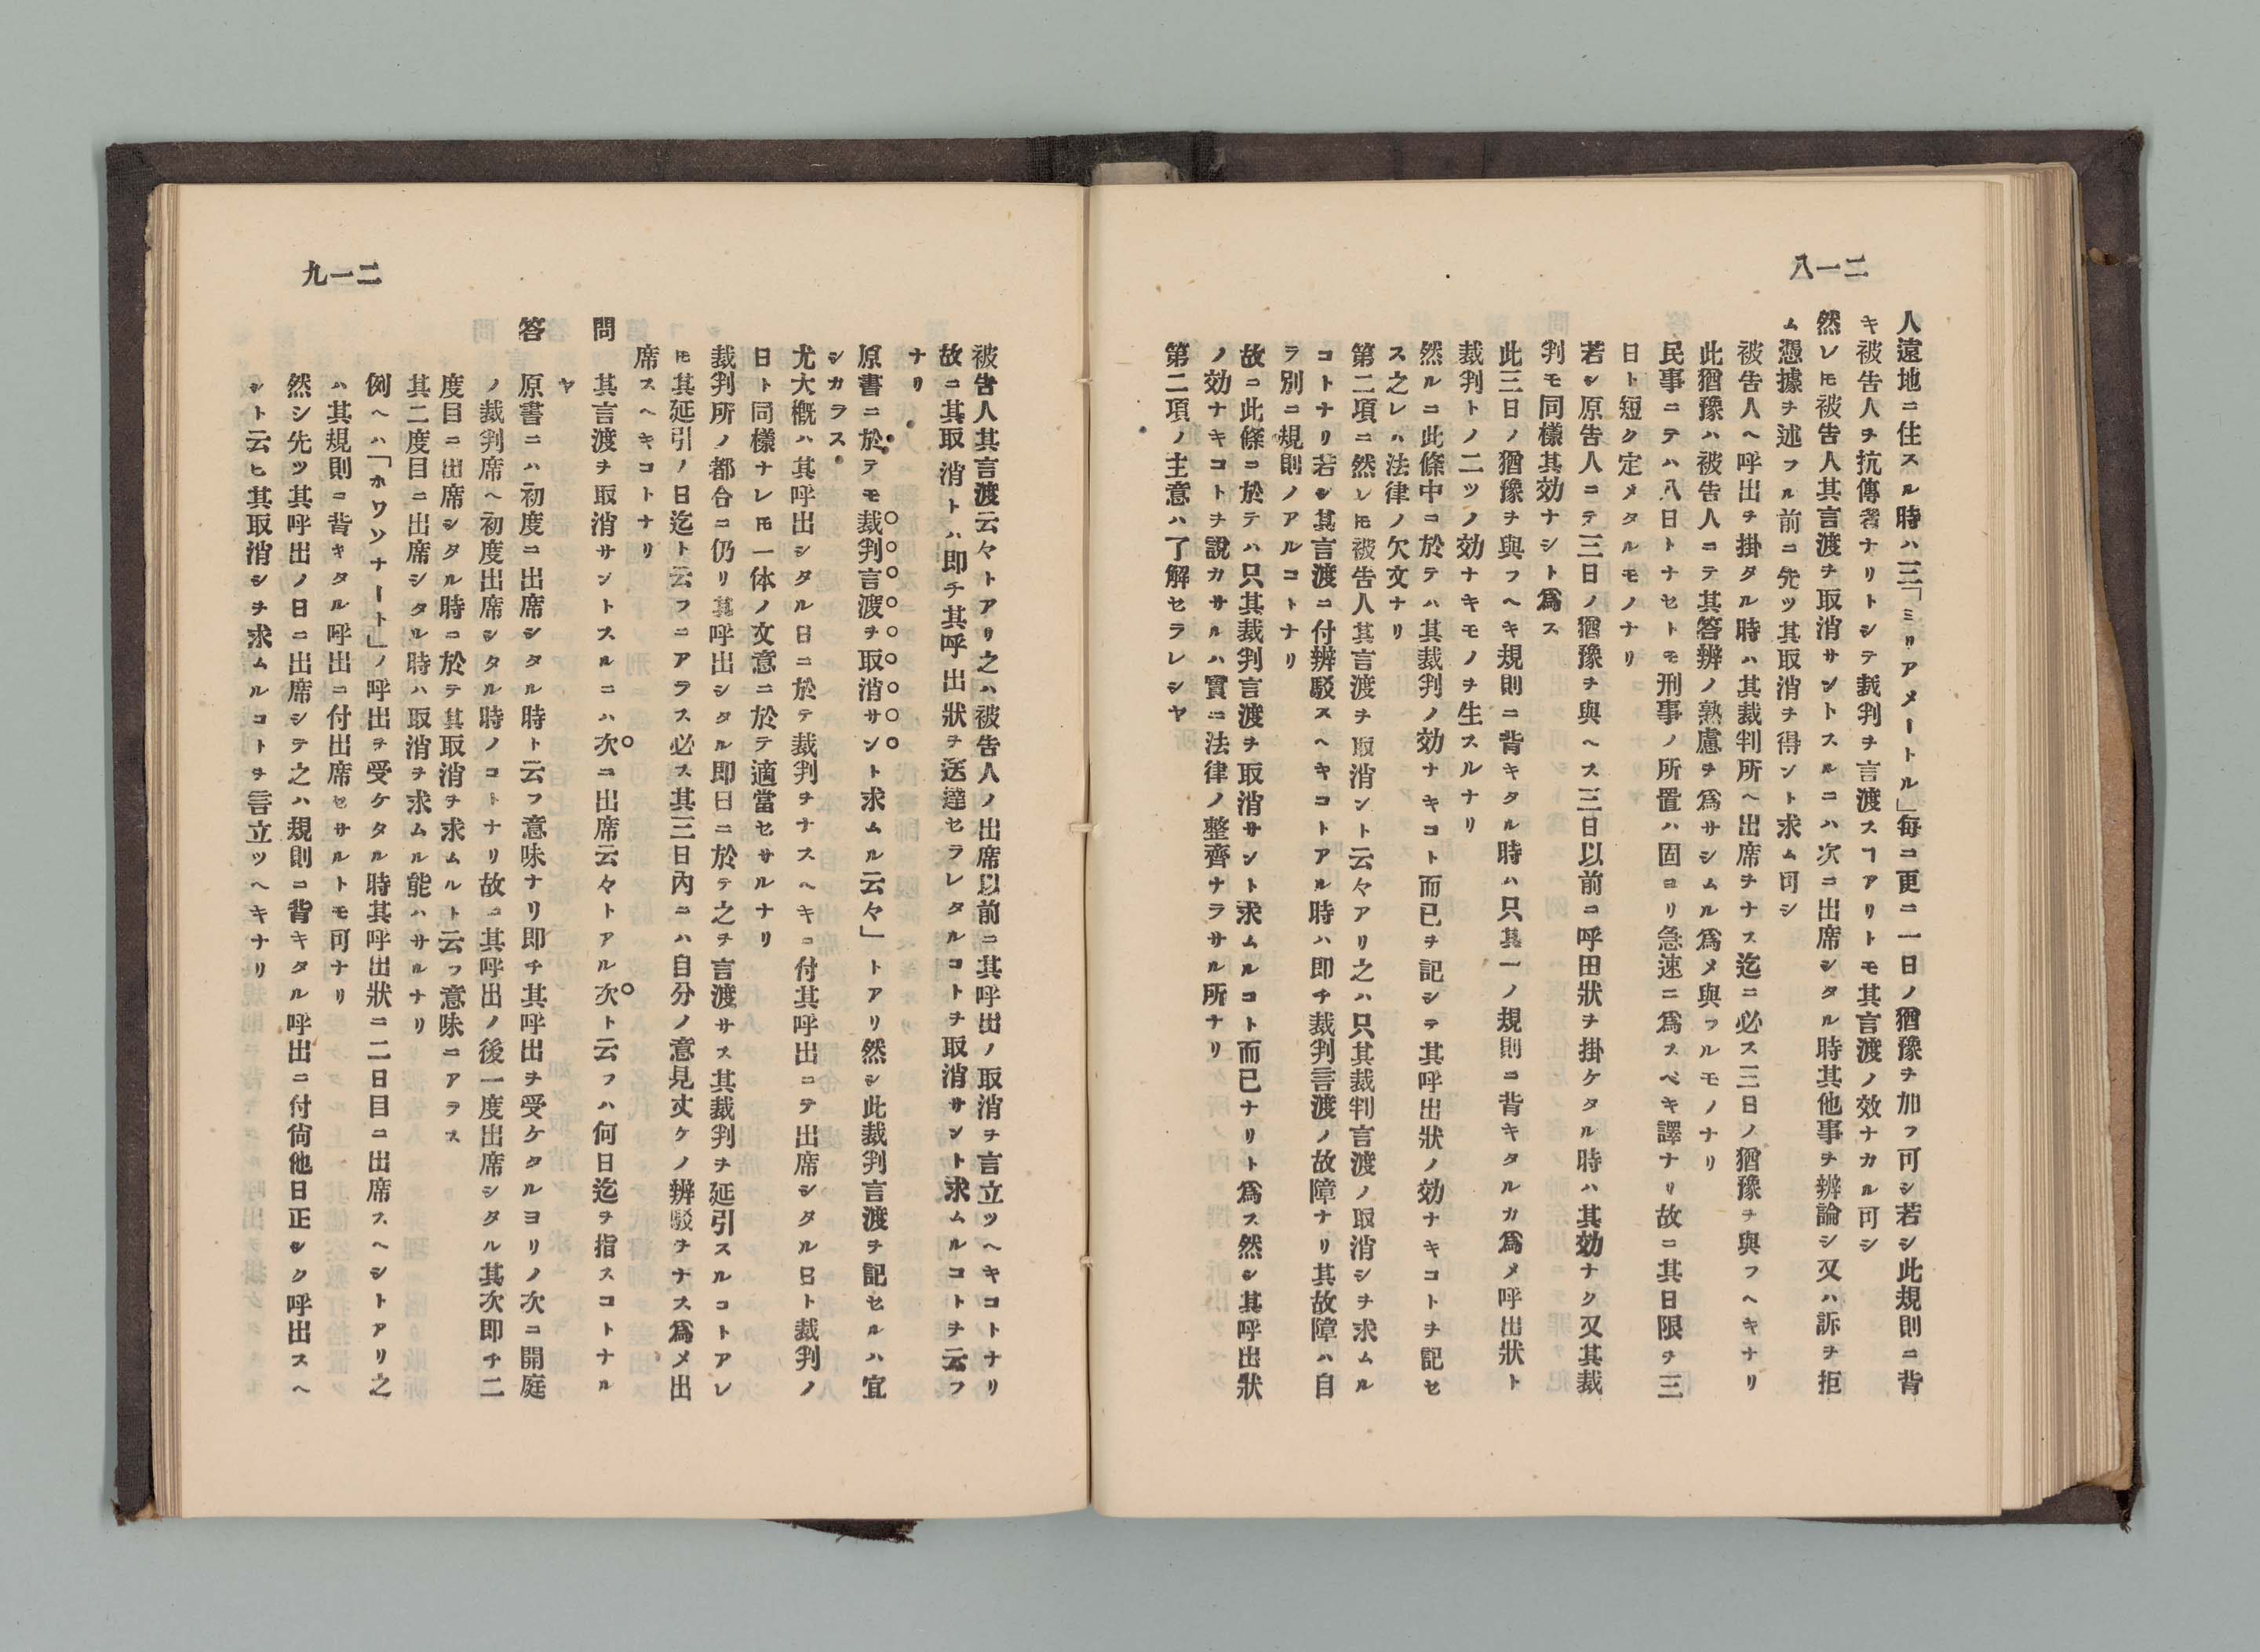 二一八
人遠地ニ住スル時ハ三「ミリアメートル」毎ニ更ニ一日ノ猶豫ヲ加フ可シ若シ此規則ニ背
キ被告人ヲ抗傳者ナリトシテ裁判ヲ言渡スヿアリトモ其言渡ノ效ナカル可シ
然レ𪜈被告人其言渡ヲ取消サントスルニハ次ニ出席シタル時其他事ヲ辨論シ又ハ訴ヲ拒
ム憑據ヲ述フル前ニ先ツ其取消ヲ得ント求ム可シ
被告人ヘ呼出ヲ掛タル時ハ其裁判所ヘ出席ヲナス迄ニ必ス三日ノ猶豫ヲ與フヘキナリ
此猶豫ハ被告人ニテ其答辨ノ熟慮ヲ爲サシムル爲メ與フルモノナリ
民事ニテハ八日トナセトモ刑事ノ所置ハ固ヨリ急速ニ爲スベキ譯ナリ故ニ其日限ヲ三
日ト短ク定メタルモノナリ
若シ原告人ニテ三日ノ猶豫ヲ與ヘス三日以前ニ呼田狀ヲ掛ケタル時ハ其効ナク又其裁
判モ同樣其効ナシト爲ス
此三日ノ猶豫ヲ與フヘキ規則ニ背キタル時ハ只其一ノ規則ニ背キタルカ爲メ呼出狀ト
裁判トノ二ツノ効ナキモノヲ生スルナリ
然ルニ此條中ニ於テハ其裁判ノ効ナキコト而已ヲ記シテ其呼出狀ノ効ナキコトヲ記セ
ス之レハ法律ノ欠文ナリ
第二項ニ然レ𪜈被告人其言渡ヲ取消ント云々アリ之ハ只其裁判言渡ノ取消シヲ求ムル
コトナリ若シ其言渡ニ付辨駁スヘキコトアル時ハ即チ裁判言渡ノ故障ナリ其故障ハ自
ラ別ニ規則ノアルコトナリ
故ニ此條ニ於テハ只其裁判言渡ヲ取消サント求ムルコト而已ナリト爲ス然シ其呼出狀
ノ効ナキコトヲ說カサルハ實ニ法律ノ整齊ナラサル所ナリ
第二項ノ主意ハ了解セラレシヤ
二一九
被告人其言渡云々トアリ之ハ被告人ノ出席以前ニ其呼出ノ取消ヲ言立ツヘキコトナリ
故ニ其取消トハ即チ其呼出狀ヲ送達セラレタルコトヲ取消サント求ムルコトヲ云フ
ナリ
原書ニ於テモ裁判言渡ヲ取消サント求ムル云々」トアリ然シ此裁判言渡ヲ記セルハ宜
シカラス
尤大概ハ其呼出シタル日ニ於テ裁判ヲナスヘキニ付其呼出ニテ出席シタル日ト裁判ノ
日ト同樣ナレ𪜈一体ノ文意ニ於テ適當セサルナリ
裁判所ノ都合ニ仍リ其呼出シタル即日ニ於テ之ヲ言渡サス其裁判ヲ延引スルコトアレ
𪜈其延引ノ日迄ト云フニアラス必ス其三日內ニハ自分ノ意見丈ケノ辨駁ヲナス爲メ出
席スヘキコトナリ
問　其言渡ヲ取消サントスルニハ次ニ出席云々トアル次ト云フハ何日迄ヲ指スコトナル
ヤ
答　原書ニハ初度ニ出席シタル時ト云フ意味ナリ即チ其呼出ヲ受ケタルヨリノ次ニ開庭
ノ裁判席ヘ初度出席シタル時ノコトナリ故ニ其呼出ノ後一度出席シタル其次即チ二
度目ニ出席シタル時ニ於テ其取消ヲ求ムルト云フ意味ニアラス
其二度目ニ出席シタル時ハ取消ヲ求ムル能ハサルナリ
例ヘハ「ホワソナート」ノ呼出ヲ受ケタル時其呼出狀ニ二日目ニ出席スヘシトアリ之
ハ其規則ニ背キタル呼出ニ付出席セサルトモ可ナリ
然シ先ツ其呼出ノ日ニ出席シテ之ハ規則ニ背キタル呼出ニ付尙他日正シク呼出スヘ
シト云ヒ其取消シヲ求ムルコトヲ言立ツヘキナリ